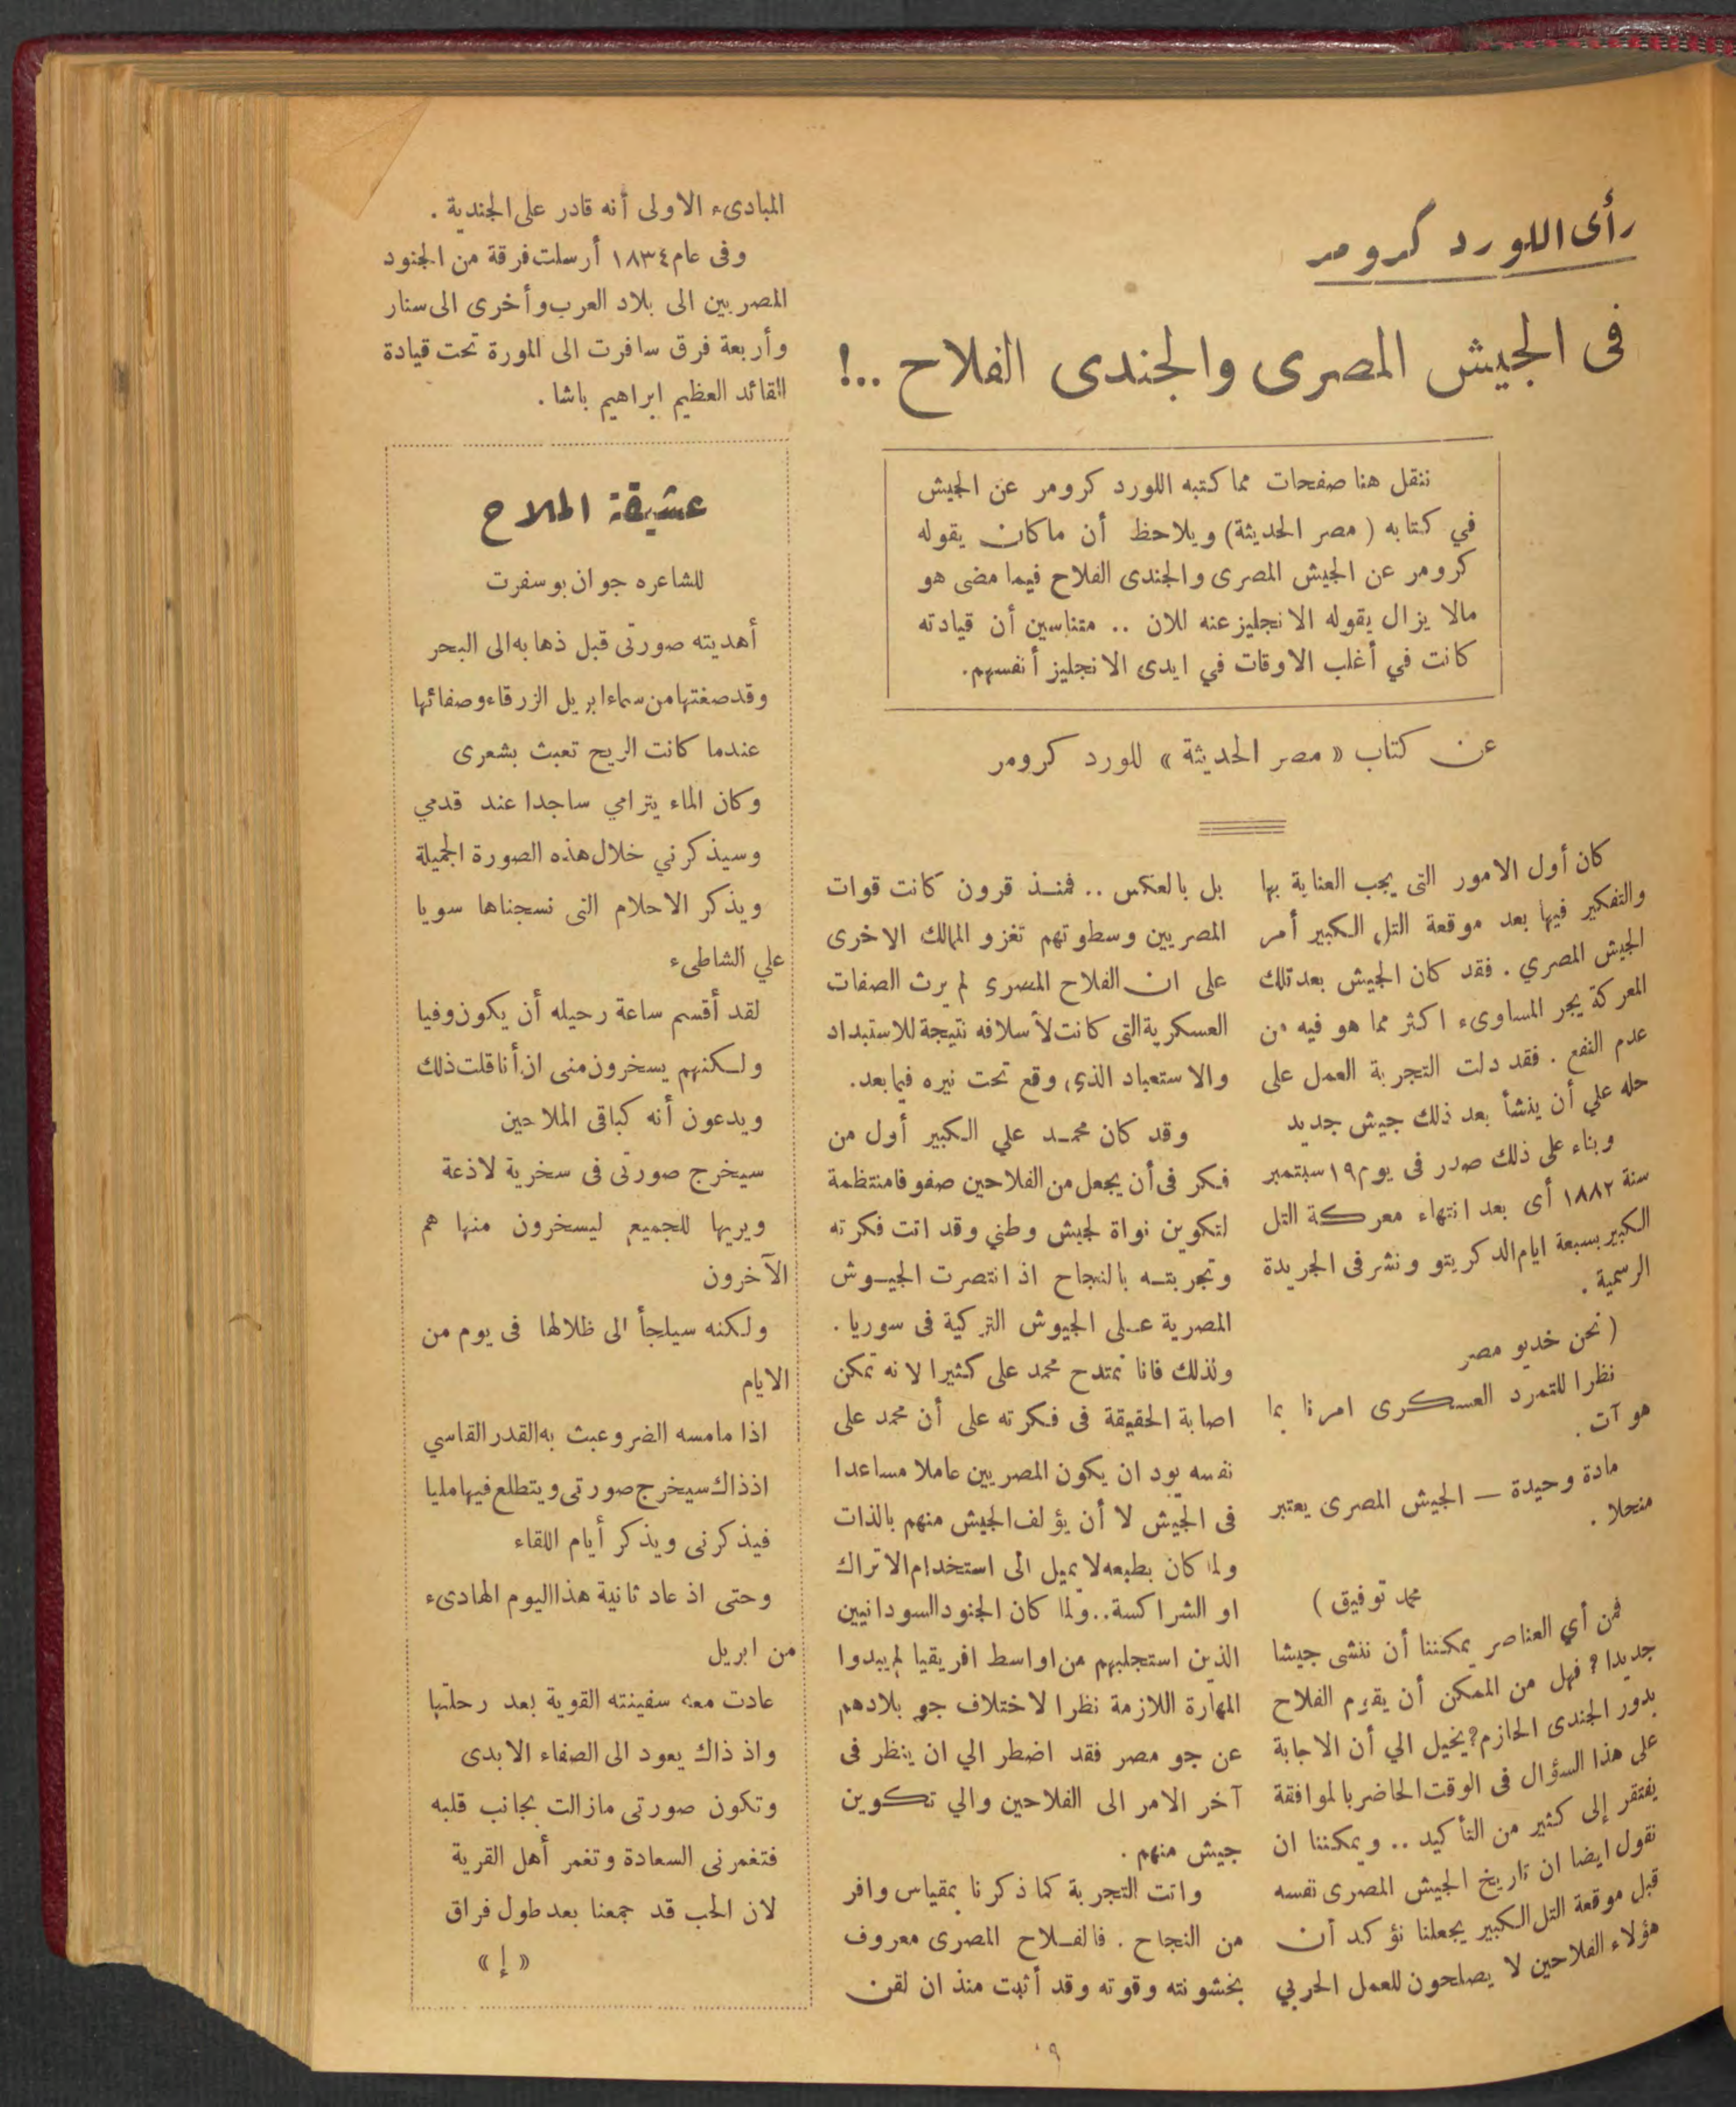 رأى اللورد كرومر
فى الجيش المصرى والجندى الفلاح ..!
ننقل هنا صفحات مما كتبه اللورد كرومر عن الجيش
في كتابه ( مصر الحديثة ) ويلاحظ أن ما كان يقوله
كرومر عن الجيش المصرى والجندى الفلاح فيما مضى هو
مالا يزال يقوله الانجليز عنه للان .. متناسين أن قيادته
كانت في أغلب الاوقات في ايدى الانجليز أنفسهم.
عن كتاب « مصر الحديثة » للورد كرومر
كان أول الامور التى يجب العناية بها
والتفكير فيها بعد موقعة التل الكبير أمر
الجيش المصري . فقد كان الجيش بعد تلك
المعركة يجر المساوىء اكثر مما هو فيه من
عدم النفع . فقد دلت التجربة العمل على
حله علي أن ينشأ بعد ذلك جيش جديد
وبناء على ذلك صدر فى يوم ١٩ سبتمبر
سنة ١٨٨٢ أى بعد انتهاء معركة التل
الكبير بسبعة ايام الدكريتو ونشر فى الجريدة
الرسمية .
( نحن خديو مصر
نظرا للتمرد العسكرى امرنا بما
هو آت .
مادة وحيدة — الجيش المصرى يعتبر
منحلا .
محمد توفيق )
فمن أي العناصر يمكننا أن ننشى جيشا
جديدا ? فهل من الممكن أن يقوم الفلاح
بدور الجندى الحازم? يخيل الي أن الاجابة
على هذا السؤال فى الوقت الحاضر بالموافقة
يفتقر إلى كثير من التأكيد .. ويمكننا ان
نقول ايضا ان تاريخ الجيش المصرى نفسه
قبل موقعة التل الكبير يجعلنا نؤكد أن
هؤلاء الفلاحين لا يصلحون للعمل الحربي
بل بالعكس .. فمنذ قرون كانت قوات
المصريين وسطوتهم تغزو الممالك الاخرى
على ان الفلاح المصرى لم يرث الصفات
العسكرية التى كانت لأسلافه نتيجة للاستبداد
والاستعباد الذي وقع تحت نيره فيما بعد.
وقد كان محمد علي الكبير أول من
فكر فى أن يجعل من الفلاحين صفوفا منتظمة
لتكوين نواة لجيش وطني وقد اتت فكرته
وتجربته بالنجاح اذ انتصرت الجيوش
المصرية على الجيوش التركية فى سوريا .
ولذلك فانا نمتدح محمد على كثيرا لانه تمكن
اصابة الحقيقة فى فكرته على أن محمد على
نفسه يود ان يكون المصريين عاملا مساعدا
فى الجيش لا أن يؤلف الجيش منهم بالذات
ولما كان بطبعه لا يميل الى استخدام الاتراك
او الشراكسة.. ولما كان الجنود السودانيين
الذين استجلبهم من اواسط افريقيا لم يبدوا
المهارة اللازمة نظرا لاختلاف جو بلادهم
عن جو مصر فقد اضطر الي ان ينظر فى
آخر الامر الى الفلاحين والي تكوين
جيش منهم .
واتت التجربة كما ذكرنا بمقياس وافر
من النجاح . فالفلاح المصرى معروف
بخشونته وقوته وقد أثبت منذ ان لقن
المبادىء الاولى أنه قادر على الجندية .
وفى عام ١٨٣٤ أرسلت فرقة من الجنود
المصريين الى بلاد العرب وأخرى الى سنار
وأربعة فرق سافرت الى المورة تحت قيادة
القائد العظيم ابراهيم باشا .
عشيقة الملاح
للشاعره جوان بوسفرت
أهديته صورتى قبل ذهابه الى البحر
وقد صغتها من سماء ابريل الزرقاء وصفائها
عندما كانت الريح تعبث بشعرى
وكان الماء يترامي ساجدا عند قدمي
وسيذكرني خلال هذه الصورة الجميلة
ويذكر الاحلام التى نسجناها سويا
علي الشاطىء
لقد أقسم ساعة رحيله أن يكون وفيا
ولكنهم يسخرون منى ان أنا قلت ذلك
ويدعون أنه كباقى الملاحين
سيخرج صورتى فى سخرية لاذعة
ويريها للجميع ليسخرون منها هم
الآخرون
ولكنه سيلجأ الى ظلالها فى يوم من
الايام
اذا مامسه الضر وعبث به القدر القاسي
اذذاك سيخرج صورتى ويتطلع فيها مليا
فيذكرنى ويذكر أيام اللقاء
وحتى اذ عاد ثانية هذا اليوم الهادىء
من ابريل
عادت معه سفينته القوية بعد رحلتها
واذ ذاك يعود الى الصفاء الابدى
وتكون صورتى مازالت بجانب قلبه
فتغمرنى السعادة وتغمر أهل القرية
لان الحب قد جمعنا بعد طول فراق
« إ »
٩